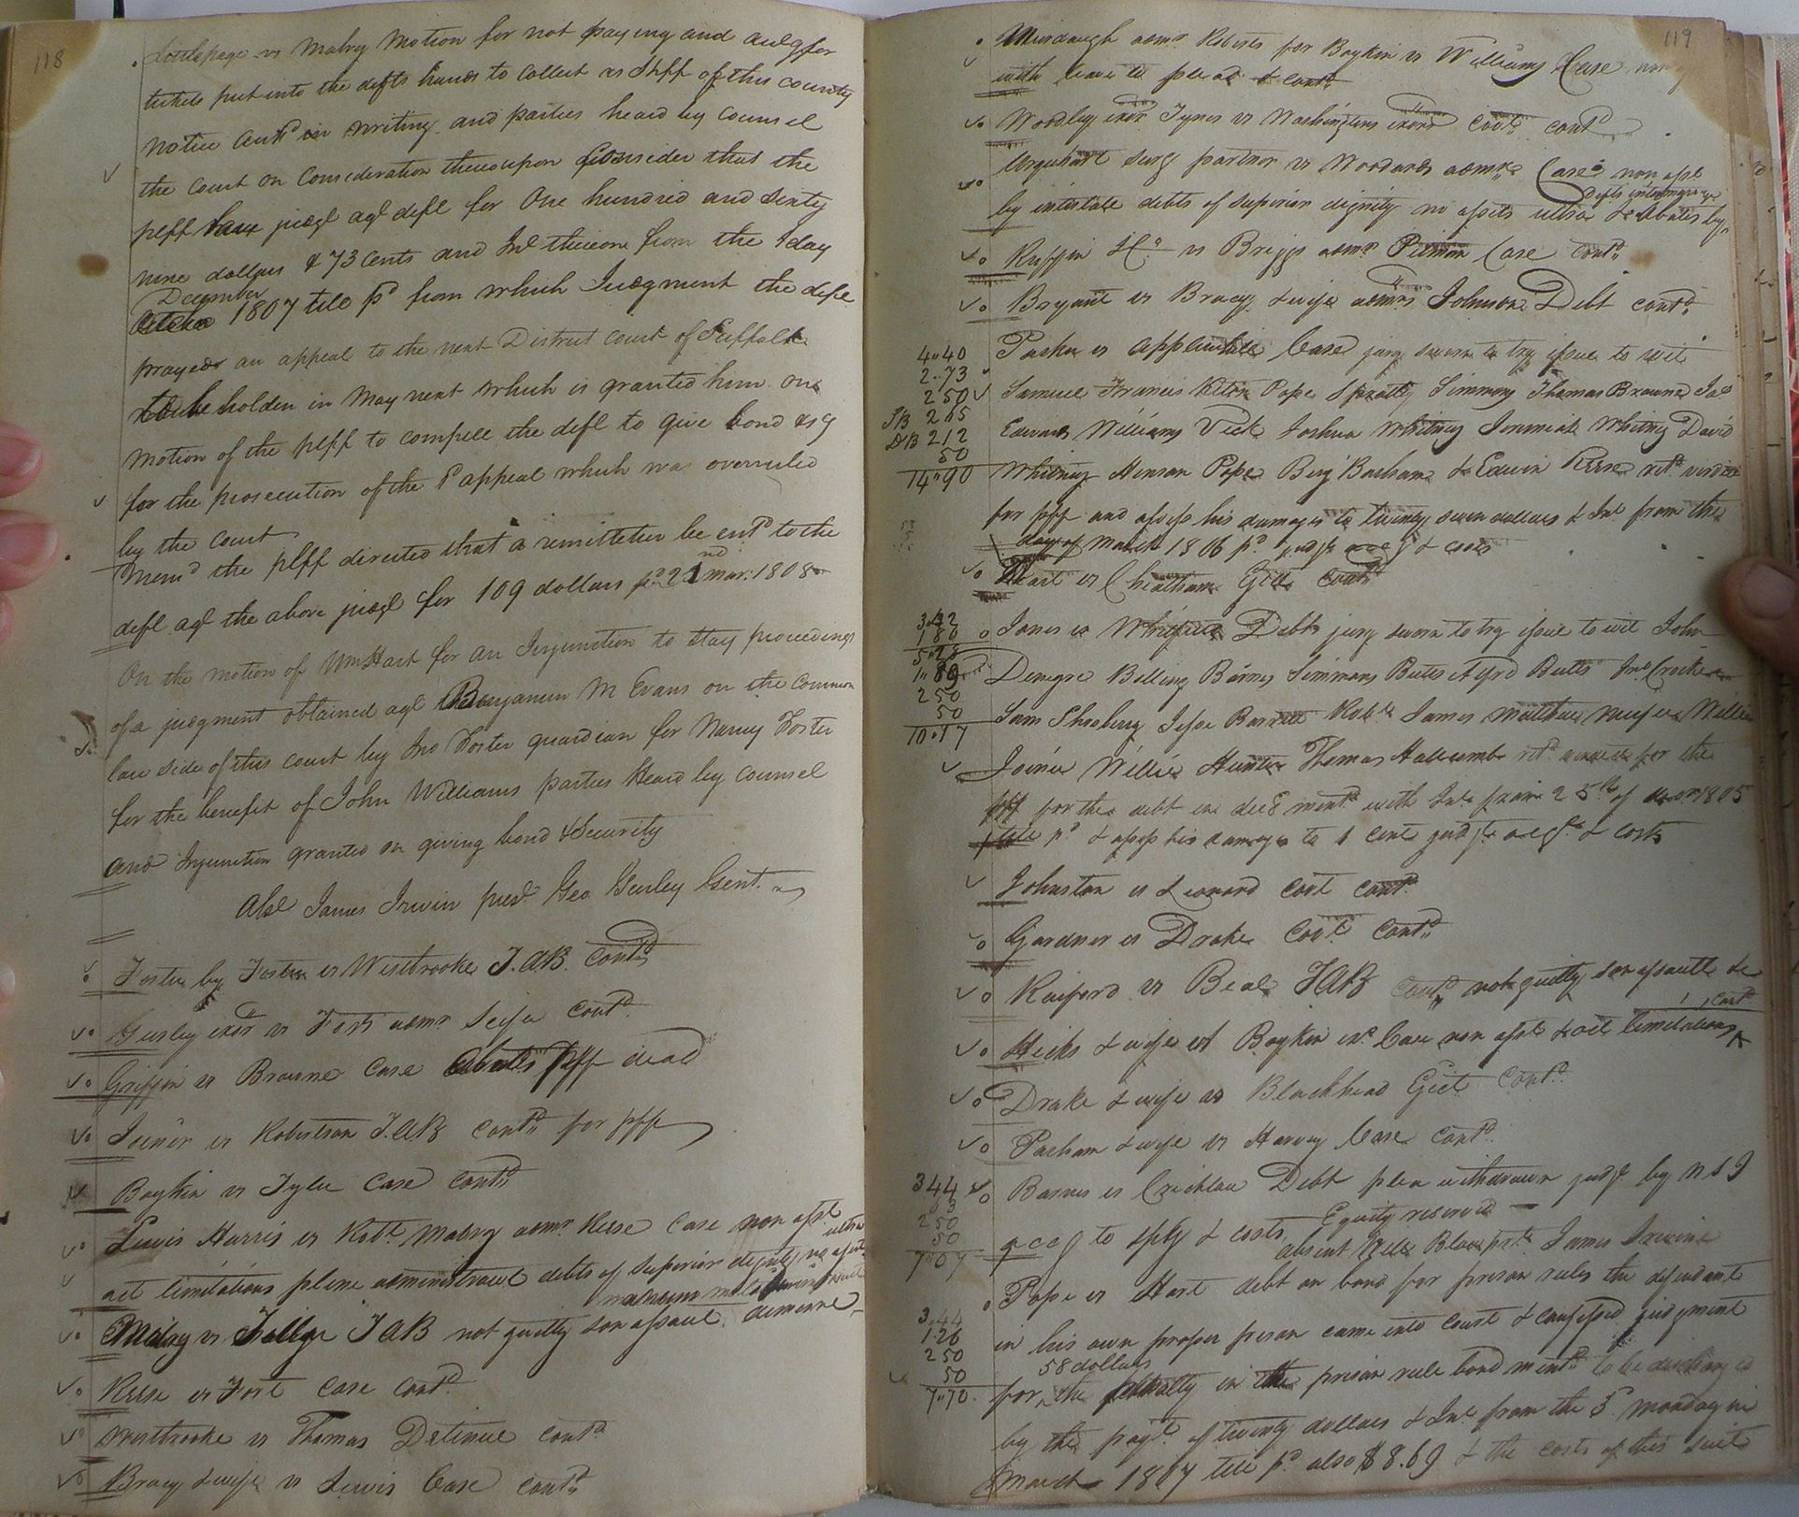 118
vs Mabry Motion for not paying and
tickets put into the defts hands to collect as Shff of this county
notice in writing and parties heard by counsel
the court on consideration thereupon consider that the
plff have judgt agt deft for One hundred and sixty
nine dollars & 73 cents and Int thereon from the 1 day
December
1807 till pd from which Judgment the deft
prayed an appeal to the next District court of Suffolk
to be holden in May next which is granted him on
motion of the plff to compell the deft to give bond & sy
for the prosecution of the sd appeal which was overruled
by the court
Memd the plff directed that a remitteter be entd to the
deft agt the above judgt for 109 dollars pd 2nd Mar. 1808
On the motion of Wm Hart for an Injunction to stay proceedings
of a judgment obtained agt Benjamin M Evans on the common
law side of this court by Jno Foster guardian for Nancy Foster
for the benefit of John Williams parties heard by counsel
and Injunction granted on giving bond & Security
Abst James Irwin prest Geo Gurley Gent.
Foster by Foster vs Westbrooke T.AB. contd
Gurley exor vs Fort admr Scifa contd
Griffin vs Browne Case abates plff dead
Joiner vs Robertson T.AB contd for plff
Boykin vs Tyler Case contd
Lewis Harris vs Robt Mabry admr Kerse Case non asst
ultra
act limitations plene administravit debts of superior dignity no assets
Mabry vs TAB not guilty son assault demesne
Kerse vs Fort Case contd
Westbrooke vs Thomas Detinue contd
Bracy & wife vs Lewis Case contd
119
Murdaugh admr Roberts for Boykin vs Williams Case non
with leave to plead & contd
Woodley exor Tynes vs Washingtons exors Covt contd
Urquhart surg partner vs Woodards admrx Case non asst
Defts intermarriage
by intestate debts of superior dignity no assets ultra & abates by
Ruffin & Co vs Briggs admr Pitman Case contd
Bryant vs Bracy & wife admrs Johnson Debt contd
4"40
Parker vs Applewhite Case jury sworn to try issue to wit
2"73
250
Samuel Francis Pope Spratly Simmons Thomas Browne Jas
SB 265
DB 212
Edwards Williams Vick Joshua Whitney Jeremiah Whitney David
50
14"90
Whitney Henson Pope Benj Barham & Edwin Kerse retd verdict
for plff and assess his damages to twenty seven dollars & Int from the
day of March 1806 pd judgt accg & costs
Hart vs Cheatham Ejt contd
180
Jones vs Debt jury sworn to try issue to wit John
5"28
1"89
Denegre Bolling Barnes Simmons Butts Alfrd Butts Jno Crocker
250
50
Sam Jesse Barrett Robt James Matthew Willie
10"17
Joiner Willie Hunter Thomas Hallcombe retd verdict for the
plff for the debt in decl mentd with Int from 25th of 1805
till pd & assess his damages to 1 cent judgt accg & costs
Johnston vs Leonard Covt contd
Gardner vs Drake Covt contd
Raiford vs Beal TAB contd not guilty son assault &c
contd
Hicks & wife vs Boykin exr Case non asst & act limitations
Drake & wife vs Blackhead Ejt contd
Parham & wife vs Harvey Case contd
344
Barnes vs Crichlow Debt plea withdrawn judgt by NSI
250
50
Equity reserved
accg to spty & costs
7"07
absent James Irwin
Pope vs Hart debt on bond for prison rules the defendant
3.44
1.26
in his own proper person came into court & confessed judgment
250
50
58 dollars
7"70
for the penalty in the prison rule bond mentd to be discharged
by the payt of twenty dollars & Int from the 3d monday in
March 1807 till pd also $8.69 & the costs of this suit